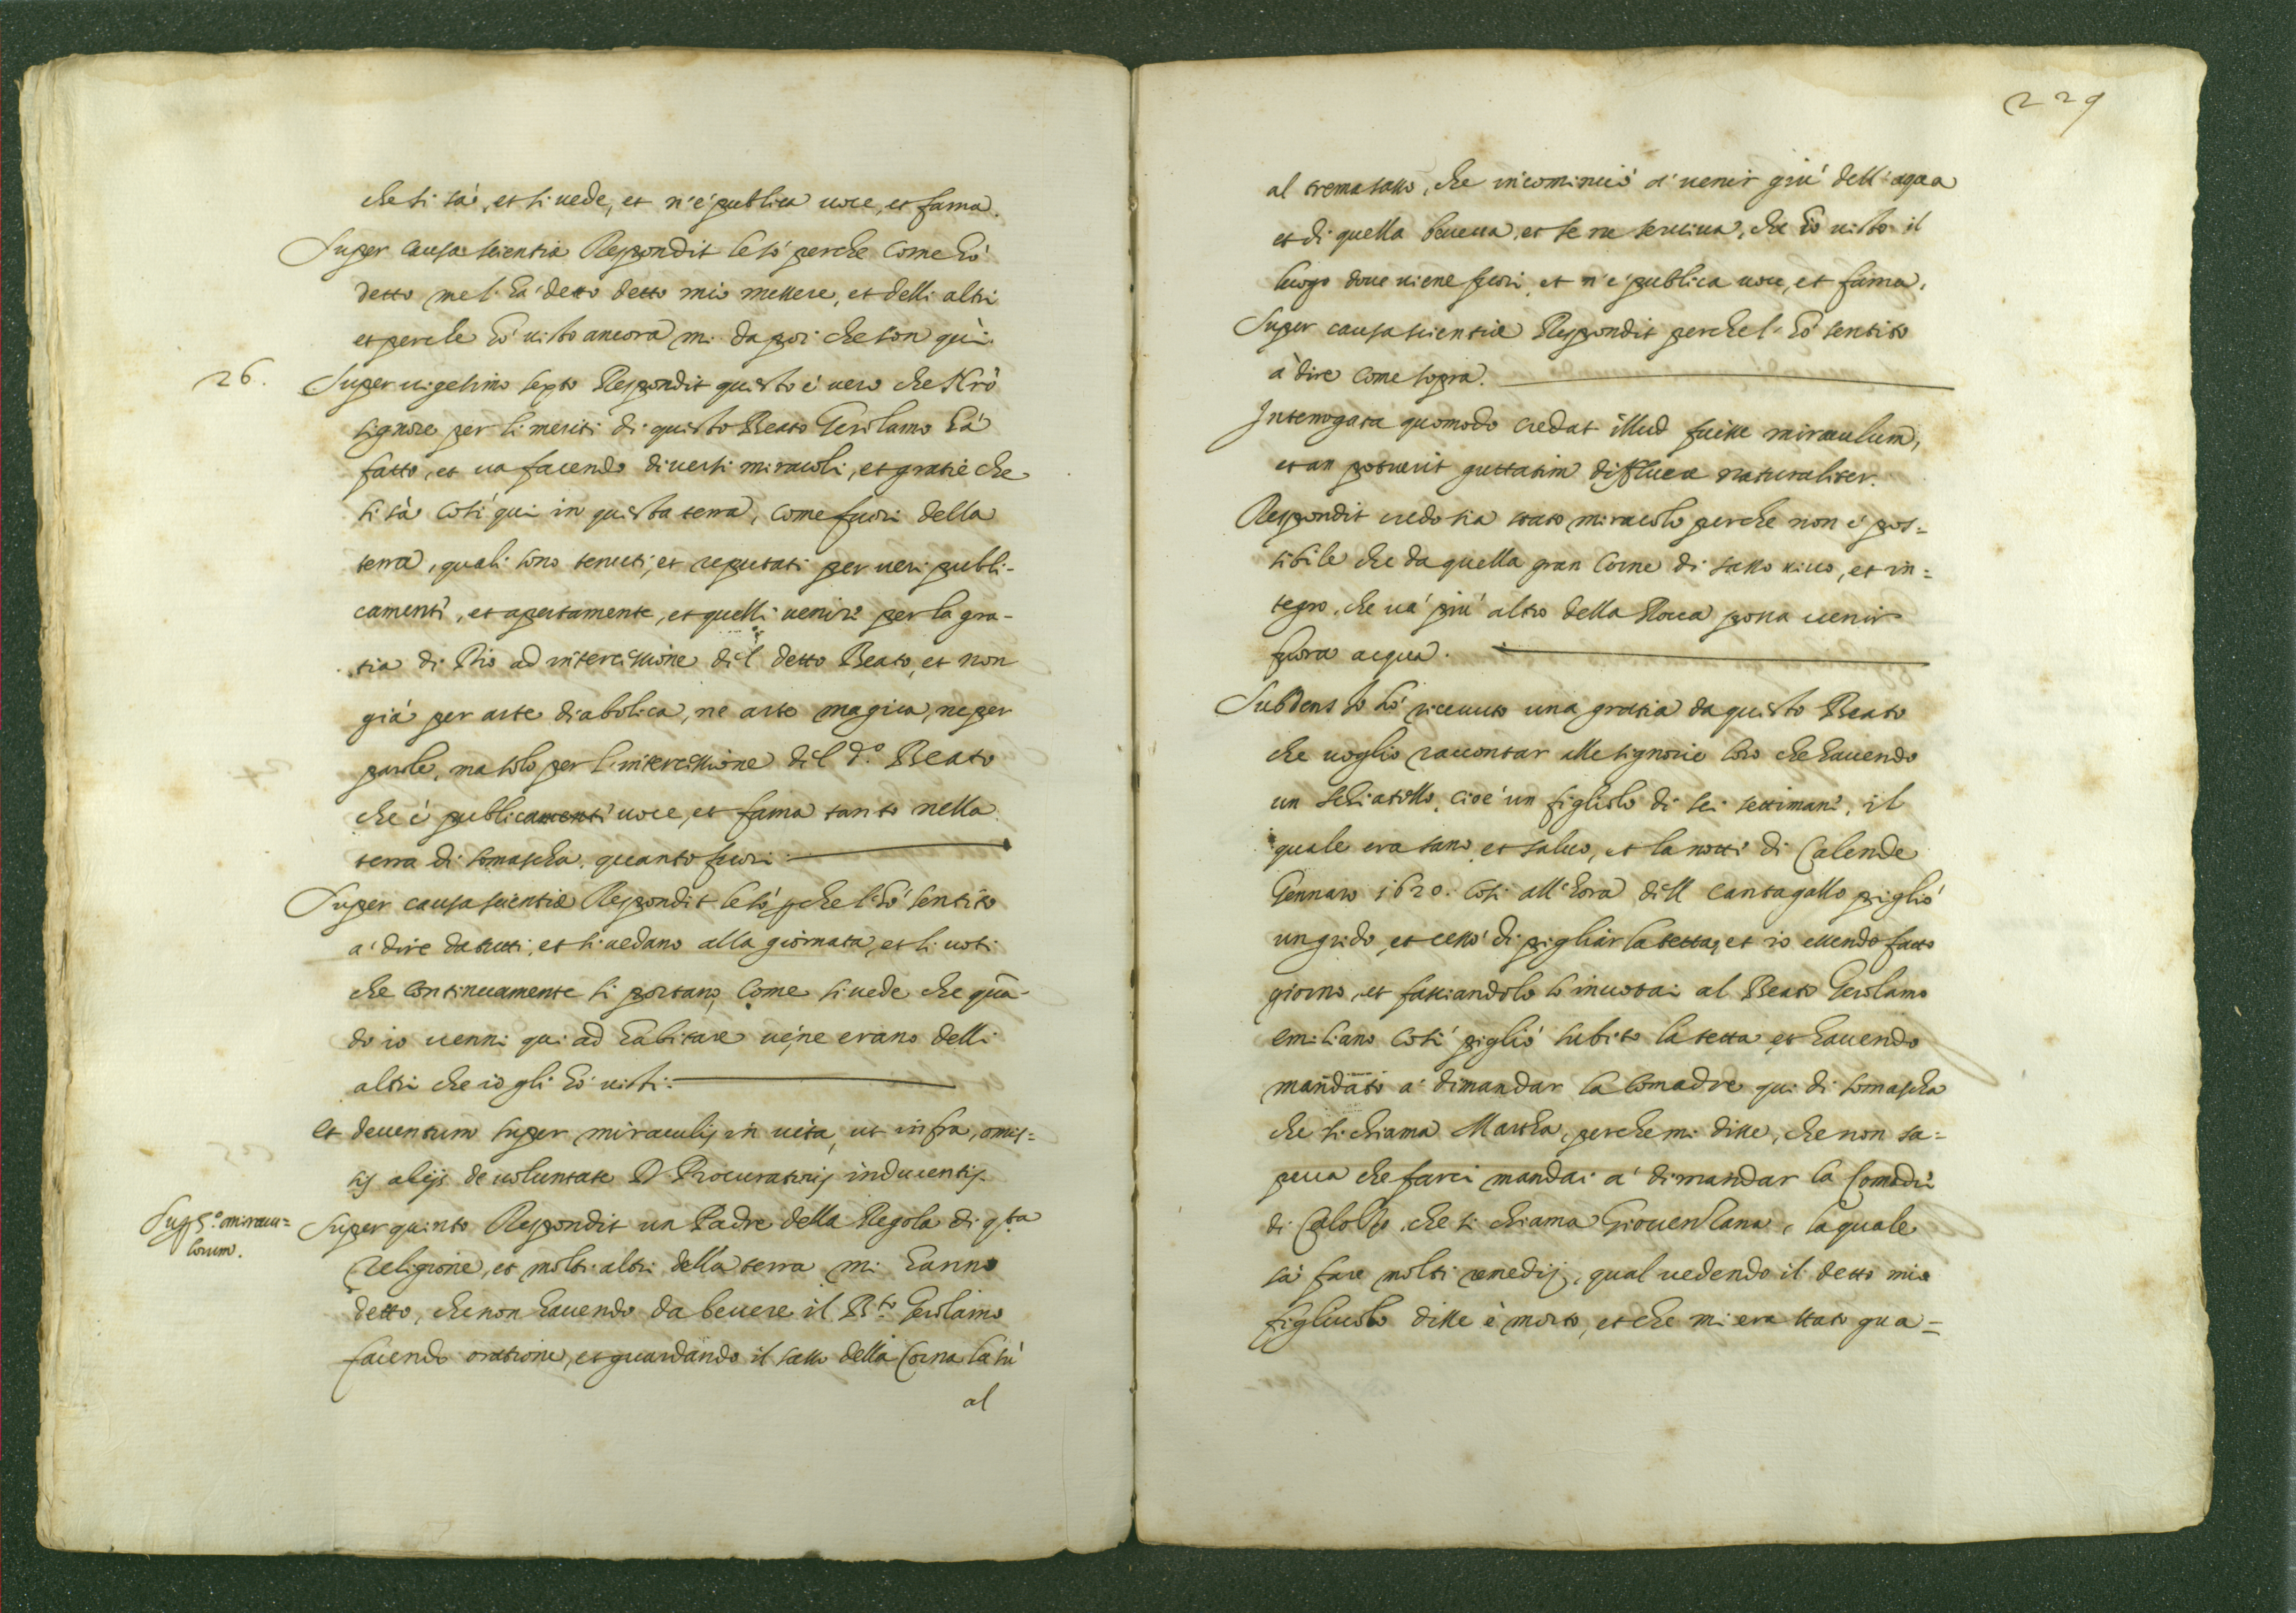 che si sà, et si vede, et n'è publica voce, et fama.
Super causa scientiæ Respondit lo sò perche come hò
detto me l'hà detto detto mio messere, et delli altri
et perche hò visto ancora mi da poi che son quì.
26. Super vigesimo sexto Respondit questo è vero che Nrõ
signore per li meriti di questo Beato Gerolamo hà
fatto, et va facendo diversi miracoli, et gratie che
si sà così qui in questa terra, come fuori della
terra, quali sono tenuti, et reputati per veri publi-
camente, et apertamente, et quelli venire per la gra-
tia di Dio ad intercessione dil detto Beato, et non
già per arte diabolica, ne arte magica, ne per
parole, ma solo per l'intercessione dil d.º Beato
che è publicamente voce, et fama tanto nella
terra di somascha, quanto fuori.
Super causa scientiæ Respondit lo sò pche l'hò sentito
a' dire da tutti, et si vedano alla giornata, et li voti
che continuamente si portano, come si vede che quã-
do io venni qui ad habitare ve ne erano delli
altri che io gli hò visti.
et deventum super miraculis in vita, ut infra, omis-
sis alijs de voluntate D. Procuratoris inducentis.
Sup 5.º miracu=
lorum.
Super quinto Respondit un Padre della Regola di q.sta
religione, et molti altri della terra mi hanno
detto, che non havendo da bevere il B.to Gerolamo
facendo oratione, et guardando il sasso della Corna là sù
al
229
al tremasasso, che incominciò a' venir giù dell'aqua
et di quella beveva, et se ne serviva, che hò visto il
luogo dove viene fuori, et n'è publica voce, et fama.
Super causa scientiæ Respondit perche l'hò sentito
à dire come sopra.
Interrogata quomodo credat illud fuisse miraculum,
et an potuerit guttatim diffluere naturaliter.
Respondit credo sia stato miracolo perche non è pos=
sibile che da quella gran Corne di sasso vivo, et in=
tegro, che và più alto della Rocca possa venir
fuora acqua.
Subdens Io hò ricevuto una gratia da questo Beato
che voglio raccontar alle signorie loro che havendo
un schiatello, cioè un figliolo di sei settimane, il
quale era sano, et salvo, et la notte di Calende
Gennaro 1620. così all'hora dell cantagallo pigliò
un grido, et cessò di pigliar la tetta, et io essendo fatto
giorno, et fasciandolo lo invotai al Beato Gerolamo
emiliano così pigliò subito la tetta, et havendo
mandato a' dimandar la Comadre qui di somascha
che si chiama Martha, perche mi disse, che non sa=
peva che farci mandai a' dimandar la Comadre
di Calolzo, che si chiama Giovenzana, la quale
sà fare molti remedij, qual vedendo il detto mio
figliuolo disse è morto, et che mi era stato gua=